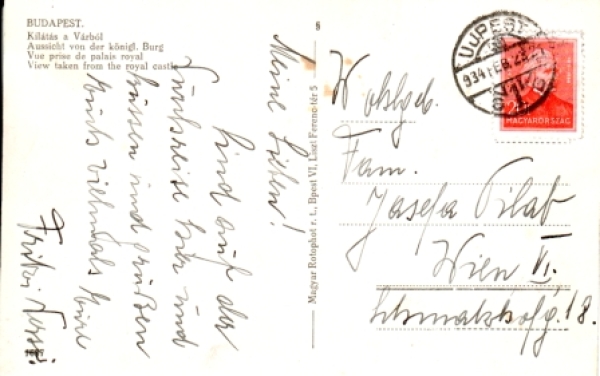 BUDAPEST.
Kilátás a Várból
Aussicht von der königl. Burg
Vue prise de palais royal
View taken from the royal castle
8
Meine Lieben!
Sind auf der
Rückreise hier und
küssen und grüßen
Euch vielmals Eure
Magyar Rotophot r. t., Bpest VI, Liszt Ferenc-tér 5
UJPEST
934 FEB
MAGYARORSZÁG
Wohlgeb.
Fam.
Josefa Pilat
Wien VI.
18.